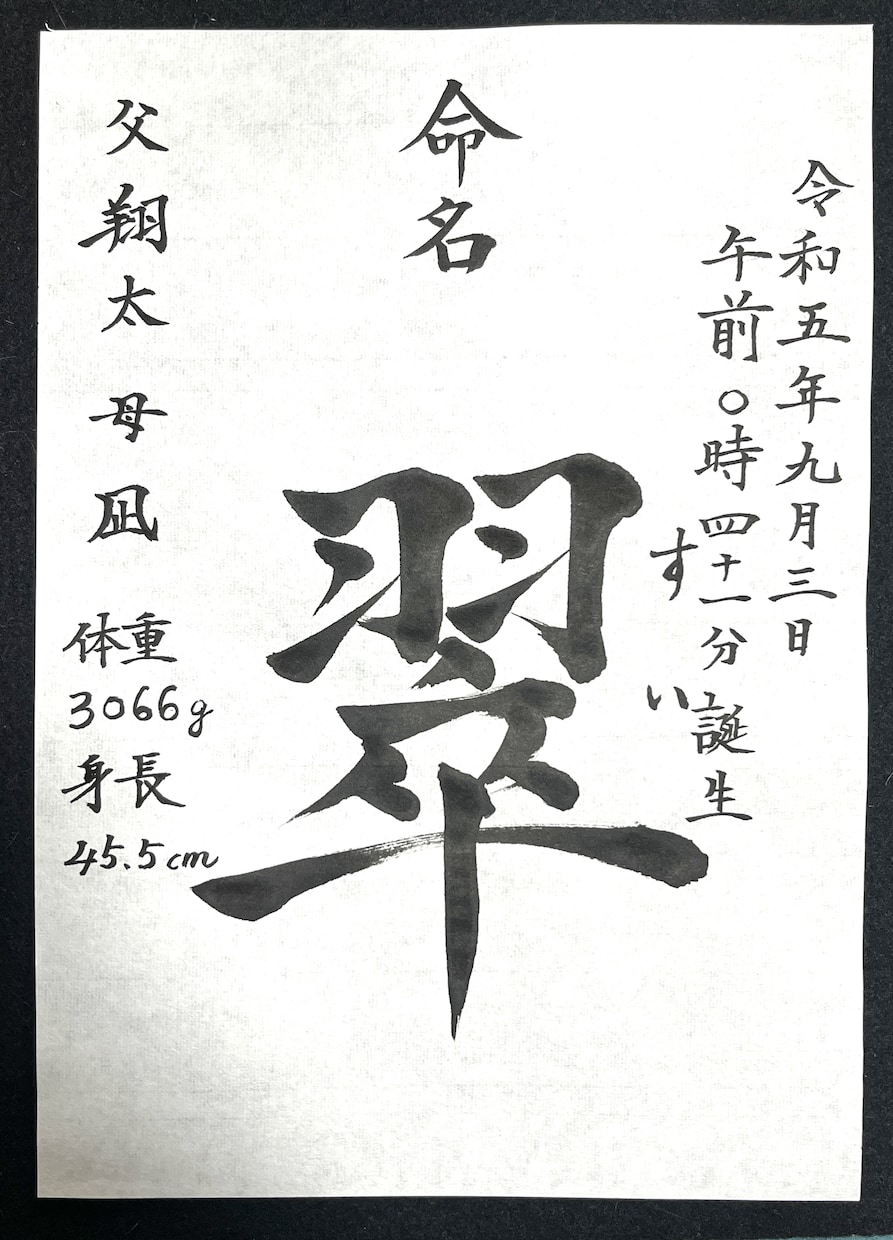 令和五年九月三日
午前〇時四十一分誕生
すい
命名
翠
父翔太 母凪
体重
3066g
身長
45.5cm